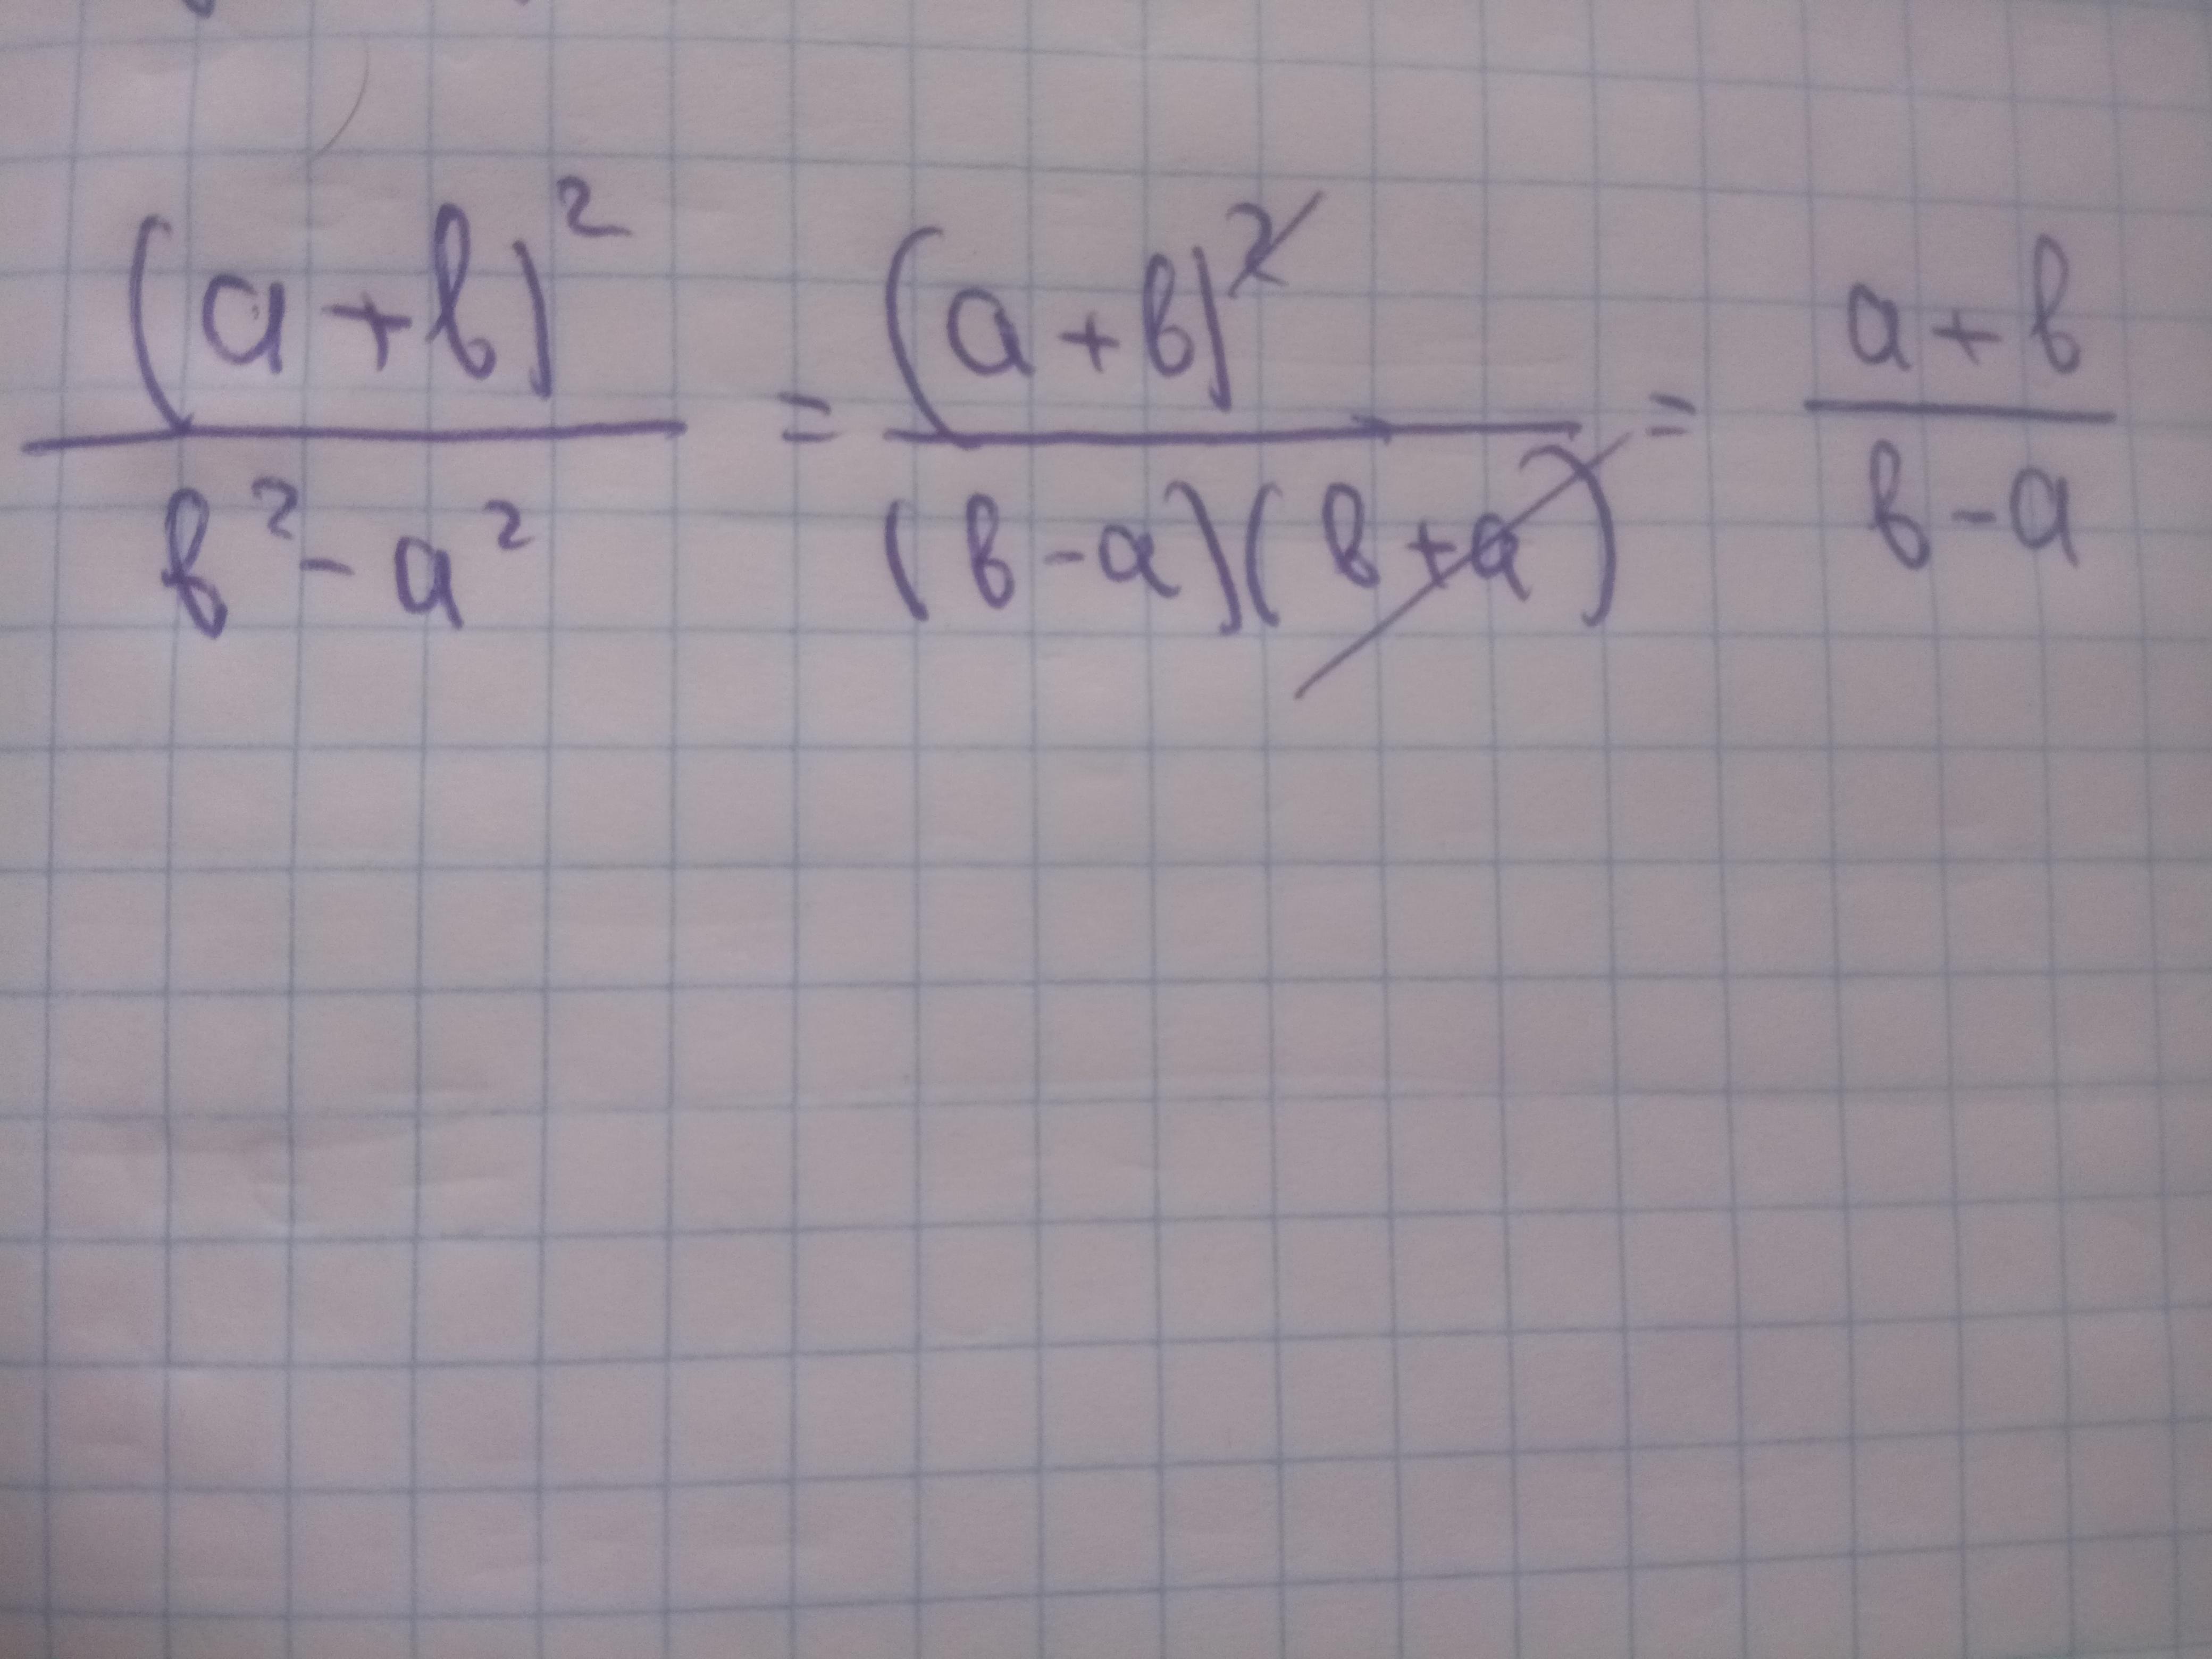 (a+b)² / b²-a² = (a+b)² / (b-a)(b+a) = a+b / b-a